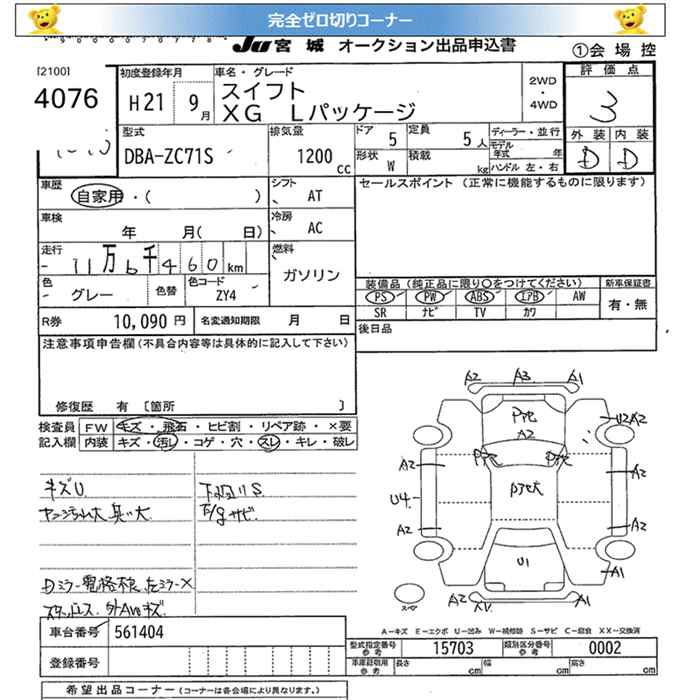 完全ゼロ切りコーナー
JU 宮城 オークション出品申込書
①会場控
[2100]
4076
初度登録年月
H21 9月
車名・グレード
スイフト
XG Lパッケージ
2WD
・
4WD
評価点
3
外装 内装
D D
型式
DBA-ZC71S
排気量
1200 cc
ドア 5
定員 5人
形状 W
積載 kg
ディーラー・並行
モデル年式 年
ハンドル 左・右
車歴
自家用・( )
シフト
AT
車検
年 月( 日)
冷房
AC
走行
11万6千460km
燃料
ガソリン
色
グレー
色替
色コード
ZY4
R券 10,090円
名変通知期限 月 日
セールスポイント (正常に機能するものに限ります)
装備品(純正品に限り○をつけてください)
新車保証書
PS PW ABS エアB AW
SR ナビ TV カワ
有・無
後日品
注意事項申告欄(不具合内容等は具体的に記入して下さい)
修復歴 有 [箇所 ]
検査員記入欄
FW キズ・飛石・ヒビ割・リペア跡・×要
内装 キズ・汚レ・コゲ・穴・スレ・キレ・破レ
キズU
下廻りS
サビ
A2 A3 A1
A2
U2A2
A2 A2
U4
A2 A2
U1
A2 XV A1
スペア
A-キズ E-エクボ U-凹み W-補修跡 S-サビ C-腐食 XX-交換済
車台番号 561404
登録番号
型式指定番号参考 15703
類別区分番号参考 0002
車庫証明用参考 長さ cm 幅 cm 高さ cm
希望出品コーナー(コーナーは各会場により異なります。)